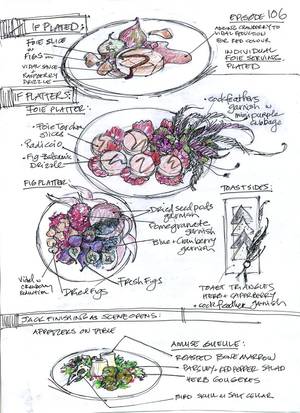 EPISODE 106
IF PLATED:
ADDING CRANBERRY TO
VIDAL REDUCTION
FOR RED COLOUR
FOIE SLICE
ON
FIGS
VIDAL SAUCE
RASPBERRY
DRIZZLE
INDIVIDUAL
FOIE SERVING
PLATED
IF PLATTERS:
FOIE PLATTER
• Foie Torchon
slices
• Radiccio
• Fig-Balsamic
Drizzle
• Cockfeathers
garnish w
mini purple
cabbage
FIG PLATTER
Dried seed pods
garnish
Pomegranate
garnish
Blue + Cranberry
garnish
Fresh Figs
Dried Figs
Vidal +
cranberry
reduction
TOAST SIDES:
TOAST TRIANGLES
HERB + CAPERBERRY
+ cock feather garnish
JACK FINISHING AS SCENE OPENS:
APPETIZERS ON TABLE
AMUSE GUEULE:
ROASTED BONE MARROW
PARSLEY, RED PEPPER SALAD
HERB GOUGERES
BIRD SKULL w SALT CELLAR